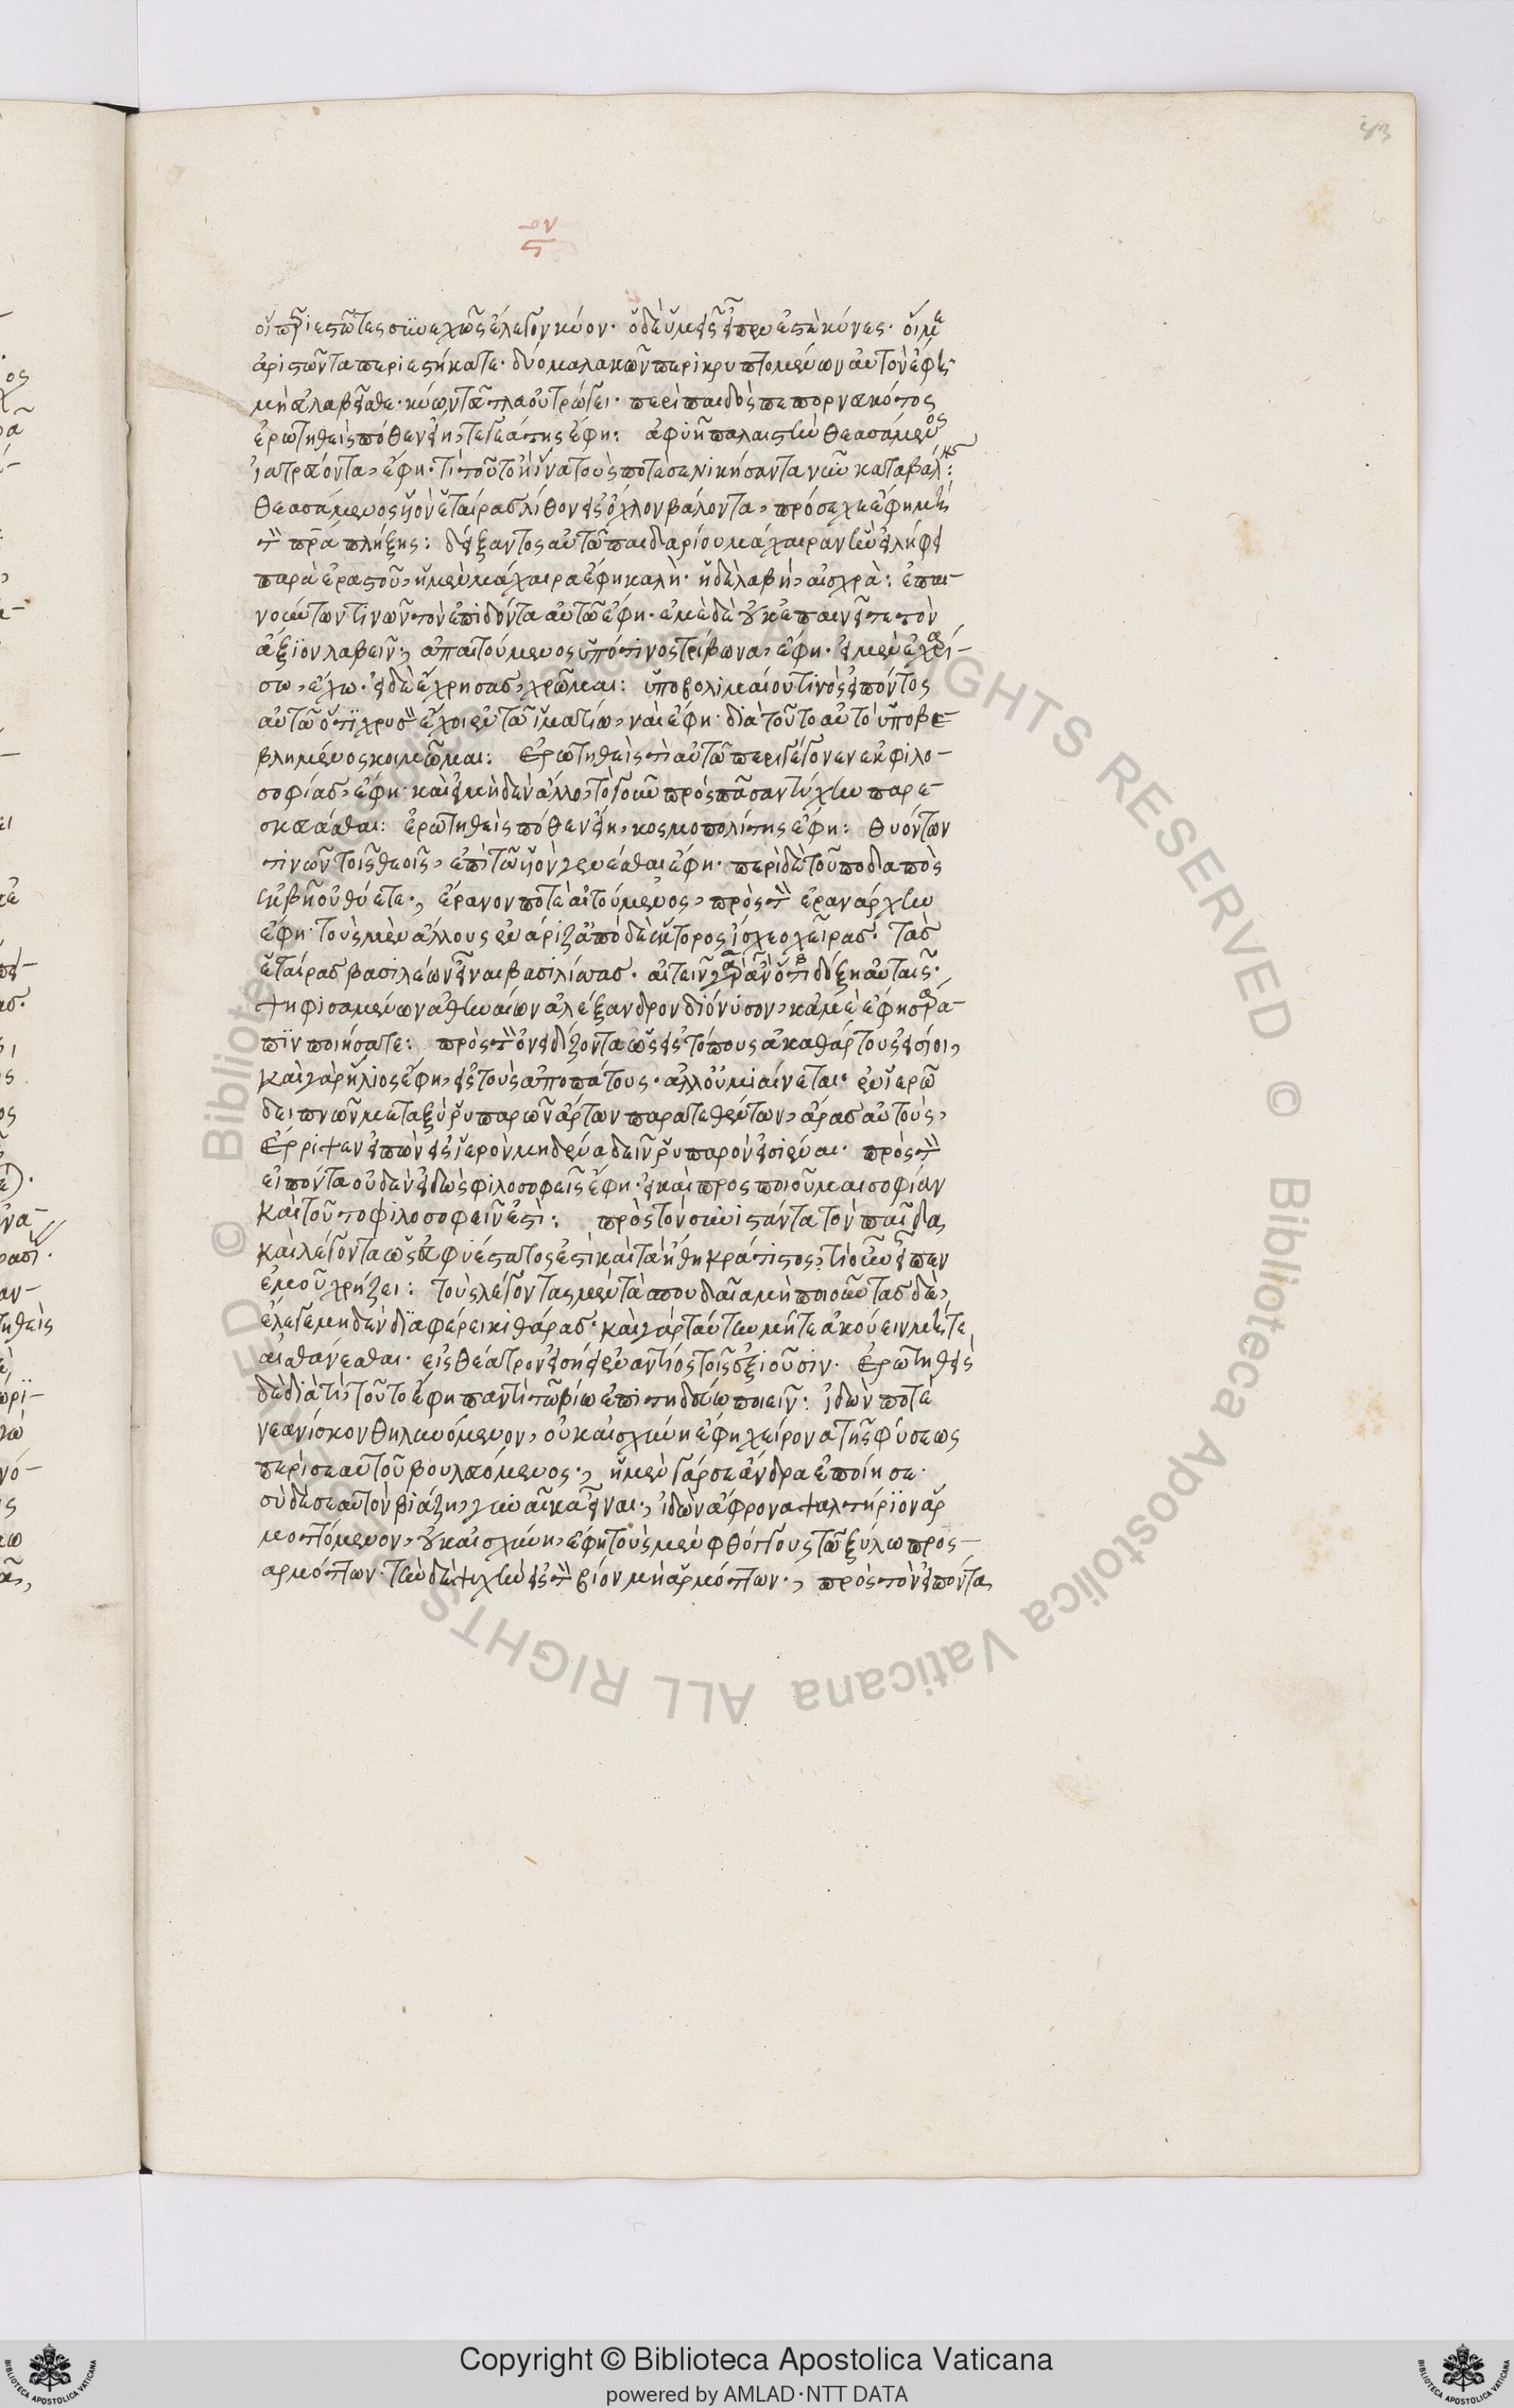 οἱ περιεστῶτες συνεχῶς ἔλεγον κύον· ὁ δὲ ὑμεῖς εἶπεν ἐστὲ κύνες· οἵ με
ἀριστῶντα περιεστήκατε· δύο μαλακῶν περικρυπτομένων αὐτὸν ἔφη·
μὴ εὐλαβεῖσθε· κύων τεῦτλα οὐ τρώγει· περὶ παιδὸς πεπορνευκότος
ἐρωτηθεὶς πόθεν εἴη, τεγεάτης ἔφη: ἀφυῆ παλαιστὴν θεασάμενος
ἰατρεύοντα, ἔφη· τί τοῦτο ἢ ἵνα τοὺς ποτέ σε νικήσαντα νῦν καταβάλῃς:
θεασάμενος υἱὸν ἑταίρας λίθον εἰς ὄχλον βάλοντα, πρόσεχε ἔφη μὴ
τὸν πρα πλήξῃς: δείξαντος αὐτῶ παιδαρίου μάχαιραν ἣν εἰλήφει
παρὰ ἐραστοῦ, ἡ μὲν μάχαιρα ἔφη καλή· ἡ δὲ λαβή, αἰσχρά: ἐπαι-
νούντων τινῶν τὸν ἐπιδόντα αὐτῶ ἔφη· ἐμὲ δὲ οὐκ ἐπαινεῖτε τὸν
ἄξιον λαβεῖν; ἀπαιτούμενος ὑπό τινος τρίβωνα, ἔφη· εἰ μὲν ἐχαρί-
σω, ἔχω· εἰ δὲ ἔχρησας, χρῶμαι: ὑποβολιμαίου τινὸς εἰπόντος
αὐτῶ ὅτι χρυσὸν ἔχοι ἐν τῶ ἱματίω, ναὶ ἔφη· διὰ τοῦτο αὐτὸ ὑποβε-
βλημένος κοιμῶμαι: ἐρωτηθεὶς τί αὐτῶ περιγέγονεν ἐκ φιλο-
σοφίας, ἔφη· καὶ εἰ μηδὲν ἄλλο, τὸ γοῦν πρὸς πᾶσαν τύχην παρε-
σκευάσθαι: ἐρωτηθεὶς πόθεν εἴη, κοσμοπολίτης ἔφη: θυόντων
τινῶν τοῖς θεοῖς, ἐπὶ τῶ υἱὸν γενέσθαι ἔφη· περὶ δὲ τοῦ ποδαπὸς
ἐκβῆ οὐ θύετε·, ἔρανον ποτὲ αἰτούμενος, πρὸς τὸν ἐρανάρχην
ἔφη· τοὺς μὲν ἄλλους ἐνάριζ ἀπὸ δὲ ἕκτορος ἴσχεο χεῖρας· τὰς
ἑταίρας βασιλέων εἶναι βασιλίσσας· αἰτεῖν γὰρ ἂν ὅτι δόξῃ αὐταῖς·
ψηφισαμένων ἀθηναίων ἀλέξανδρον διόνυσον, κἀμὲ ἔφη σαρά-
πιν ποιήσατε: πρὸς τὸν ὀνειδίζοντα ὡς εἰς τόπους ἀκαθάρτους εἰσίοι,
καὶ γὰρ ἥλιος ἔφη, εἰς τοὺς ἀποπάτους· ἀλλ' οὐ μιαίνεται· ἐν ἱερῶ
δειπνῶν μεταξὺ ῥυπαρῶν ἄρτων παρατεθέντων, ἄρας αὐτοὺς,
ἔρριψεν εἰπὼν εἰς ἱερὸν μηδὲν δεῖν ῥυπαρὸν εἰσιέναι· πρὸς τὸν
εἰπόντα οὐδὲν εἰδὼς φιλοσοφεῖς ἔφη· εἰ καὶ προσποιοῦμαι σοφίαν
καὶ τοῦτο φιλοσοφεῖν ἐστί: πρὸς τὸν συνιστάντα τὸν παῖδα,
καὶ λέγοντα ὡς εὐφυέστατος ἐστὶ καὶ τὰ ἤθη κράτιστος, τί οὖν εἶπεν
ἐμοῦ χρήζει: τοὺς λέγοντας μὲν τὰ σπουδαῖα μὴ ποιοῦντας δὲ,
ἔλεγε μηδὲν διαφέρει κιθάρας· καὶ γὰρ ταύτην μήτε ἀκούειν μήτε
αἰσθάνεσθαι· εἰς θέατρον εἰσήει ἐναντίος τοῖς ἐξιοῦσιν· ἐρωτηθεὶς
δὲ διὰ τί, τοῦτο ἔφη παντὶ τῶ βίω ἐπιτηδεύω ποιεῖν: ἰδών ποτε
νεανίσκον θηλυνόμενον, οὐκ αἰσχύνη ἔφη χείρονα τῆς φύσεως
περὶ σεαυτοῦ βουλευόμενος·, ἡ μὲν γάρ σε ἄνδρα ἐποίησε·
σὺ δὲ σεαυτὸν βιάζη, γυναῖκα εἶναι·, ἰδὼν ἄφρονα ψαλτήριον ἁρ
μοττόμενον, οὐκ αἰσχύνη, ἔφη τοὺς μὲν φθόγγους τῶ ξύλω προσ-
αρμόττων· τὴν δὲ ψυχὴν εἰς τὸν βίον μὴ ἁρμόττων·, πρὸς τὸν εἰπόντα,